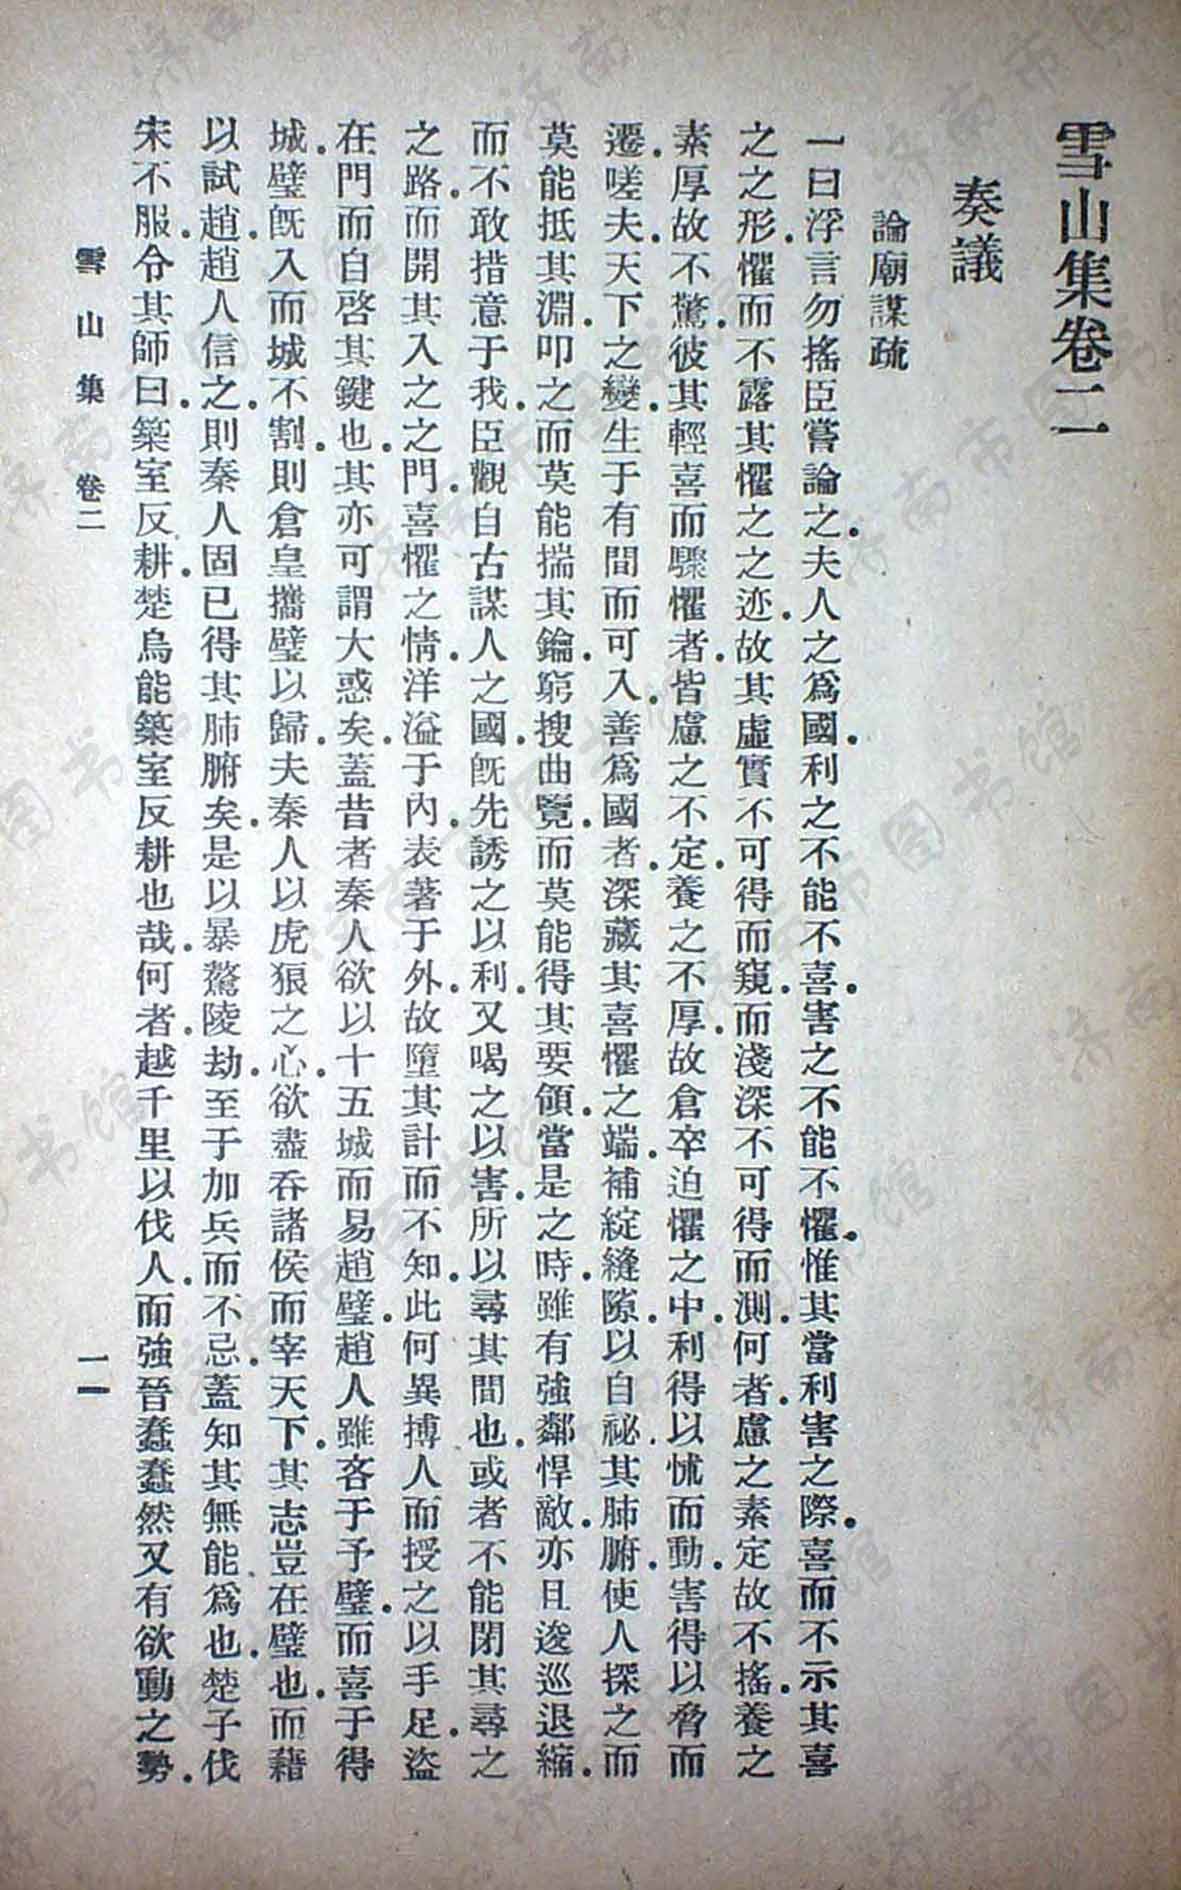 雪山集卷二
奏議
論廟謀疏
一曰浮言勿搖臣嘗論之夫人之爲國利之不能不喜害之不能不懼惟其當利害之際喜而不示其喜
之之形懼而不露其懼之之迹故其虛實不可得而窺而淺深不可得而測何者慮之素定故不搖養之
素厚故不驚彼其輕喜而驟懼者皆慮之不定養之不厚故倉卒迫懼之中利得以怵而動害得以脅而
遷嗟夫天下之變生于有間而可入善爲國者深藏其喜懼之端補綻縫隙以自祕其肺腑使人探之而
莫能抵其淵叩之而莫能揣其鑰窮搜曲覽而莫能得其要領當是之時雖有強鄰悍敵亦且逡巡退縮
而不敢措意于我臣觀自古謀人之國既先誘之以利又喝之以害所以尋其間也或者不能閉其尋之
之路而開其入之之門喜懼之情洋溢于內表著于外故墮其計而不知此何異搏人而授之以手足盜
在門而自啓其鍵也其亦可謂大惑矣蓋昔者秦人欲以十五城而易趙璧趙人雖吝于予璧而喜于得
城璧既入而城不割則倉皇攜璧以歸夫秦人以虎狼之心欲盡吞諸侯而宰天下其志豈在璧也而藉
以試趙趙人信之則秦人固已得其肺腑矣是以暴驁陵劫至于加兵而不忌蓋知其無能爲也楚子伐
宋不服令其師曰築室反耕楚烏能築室反耕也哉何者越千里以伐人而強晉蠢蠢然又有欲動之勢
雪山集 卷二
一一
济南市图书馆